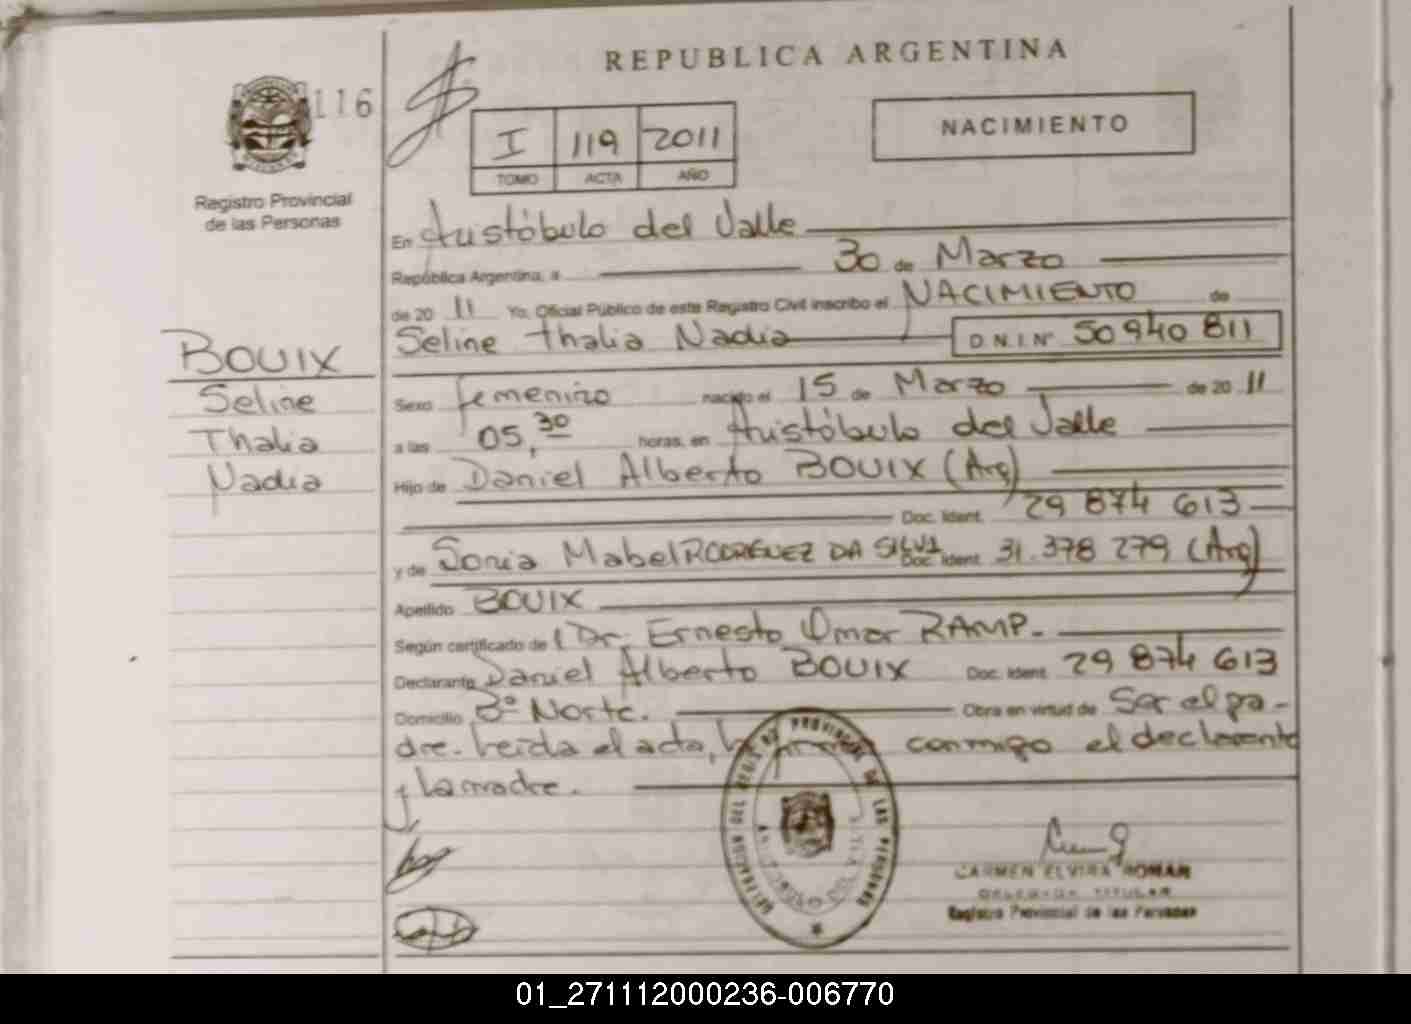 REPUBLICA ARGENTINA
116
I 119 2011
TOMO ACTA AÑO
NACIMIENTO
Registro Provincial
de las Personas
En Aristóbulo del Valle
República Argentina, a 30 de Marzo
de 20 11 Yo, Oficial Público de este Registro Civil inscribo el NACIMIENTO de
Seline Thalia Nadia D.N.I.Nº 50 940 811
BOUIX
Seline
Thalia
Nadia
Sexo femenino nacido el 15 de Marzo de 20 11
a las 05,30 horas, en Aristóbulo del Valle
Hijo de Daniel Alberto BOUIX (Arg)
Doc. Ident. 29 874 613
y de Sonia Mabel RODRGUEZ DA SILVA Doc. Ident. 31.378 279 (Arg)
Apellido BOUIX
Según certificado de Dr. Ernesto Omar RAMP.
Declarante Daniel Alberto BOUIX Doc. Ident. 29 874 613
Domicilio Bº Norte. Obra en virtud de Ser el pa-
dre. Leída el acta, conmigo el declarante
y la madre.
REGISTRO PROVINCIAL DE LAS PERSONAS
CARMEN ELVIRA ROMAN
DELEGADA TITULAR
Registro Provincial de las Personas
01_271112000236-006770